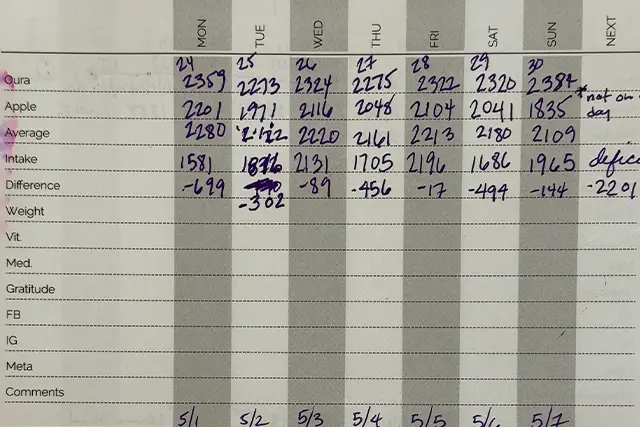 MON TUE WED THU FRI SAT SUN NEXT
24 25 26 27 28 29 30
Oura 2359 2273 2324 2275 2322 2320 2384
*not on
day
Apple 2201 1971 2116 2048 2104 2041 1835
Average 2280 2122 2220 2161 2213 2180 2109
Intake 1581 2131 1705 2196 1686 1965 defic
Difference -699 -89 -456 -17 -494 -144 -2201
-302
Weight
Vit.
Med.
Gratitude
FB
IG
Meta
Comments
5/1 5/2 5/3 5/4 5/5 5/6 5/7